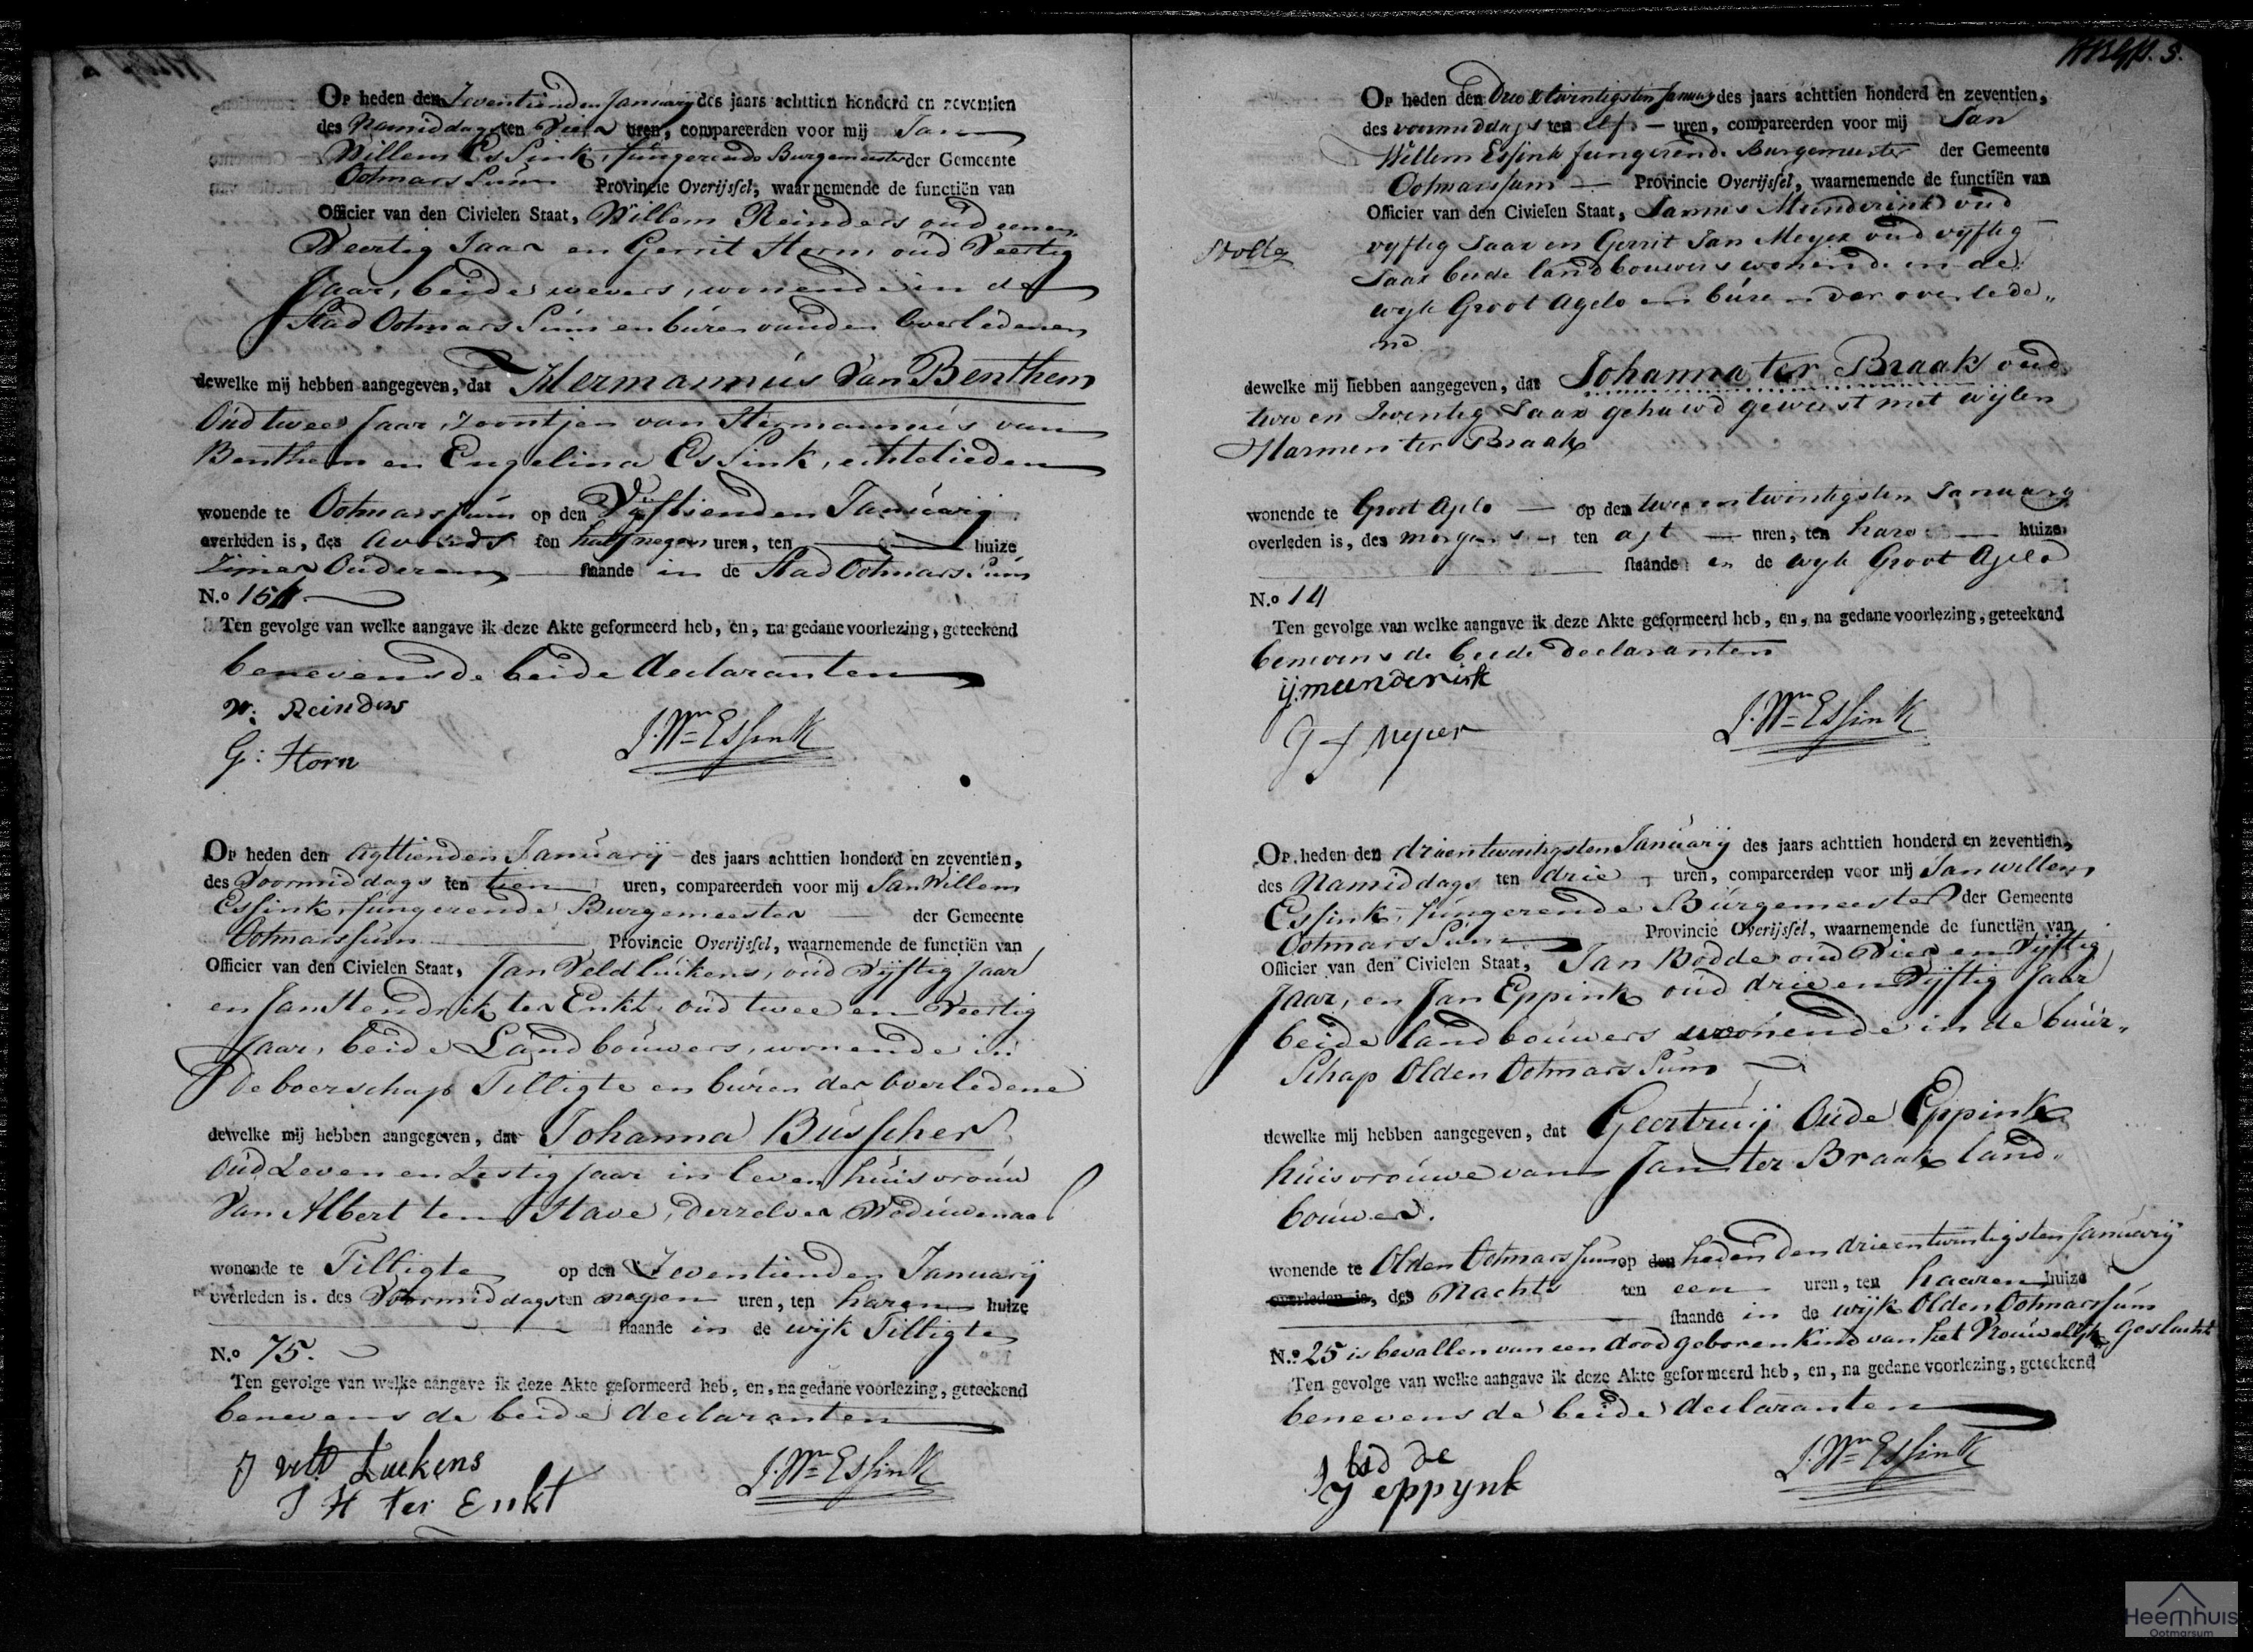 Op heden den Zeventienden Januarij des jaars achttien honderd en zeventien
des Namiddags ten Vier uren, compareerden voor mij Jan
Willem Essink, fungerende Burgemeester der Gemeente
Ootmarssum Provincie Overijssel, waarnemende de functiën van
Officier van den Civielen Staat, Willem Reinders oud eenen
Veertig Jaar en Gerrit Horn oud Veertig
Jaar, beide wevers, wonende in de
Stad Ootmarssum en buren van den Overledenen
dewelke mij hebben aangegeven, dat Hermannus Van Benthem
Oud twee Jaar, Zoontjen van Hermannus van
Benthem en Engelina Essink, echtelieden
wonende te Ootmarssum op den Vijftienden Januarij
overleden is, des Avonds ten half negen uren, ten huize
Zijner Ouderen staande in de Stad Ootmarssum
N.o 154
Ten gevolge van welke aangave ik deze Akte geformeerd heb, en, na gedane voorlezing, geteekend
benevens de beide declaranten
W: Reinders
J. Wm Essink
G: Horn
Op heden den Agttienden Januarij des jaars achttien honderd en zeventien,
des Voormiddags ten tien uren, compareerden voor mij Jan Willem
Essink, fungerende Burgemeester der Gemeente
Ootmarssum Provincie Overijssel, waarnemende de functiën van
Officier van den Civielen Staat, Jan Veldluikens, oud Vijftig Jaar
en Jan Hendrik ter Enkt, oud twee en Veertig
Jaar, beide Landbouwers, wonende in
De boerschap Tilligte en buren der Overledene
dewelke mij hebben aangegeven, dat Johanna Busscher
Oud Zeven en Zestig Jaar in leven huisvrouw
Van Albert ten Have, derzelver Weduwenaar
wonende te Tilligte op den Zeventienden Januarij
overleden is, des Voormiddags ten negen uren, ten haren huize
staande in de wijk Tilligte
N.o 75.
Ten gevolge van welke aangave ik deze Akte geformeerd heb, en, na gedane voorlezing, geteekend
benevens de beide declaranten
J velt Luekens
J. Wm Essink
J H ter Enkt
Op heden den Drie & twintigsten January des jaars achttien honderd en zeventien,
des voormiddags ten elf uren, compareerden voor mij Jan
Willem Essink fungerende Burgemeester der Gemeente
Ootmarssum Provincie Overijssel, waarnemende de functiën van
Officier van den Civielen Staat, Jannes Munderink oud
vyftig Jaar en Gerrit Jan Meyer oud vyftig
Stolte
Jaar beide landbouwers wonende in de
wyk Groot Agelo en buren der overlede„
ne
dewelke mij hebben aangegeven, dat Johanna ter Braak oud
twee en Zeventig Jaar gehuwd geweest met wylen
Harmen ter Braak
wonende te Groot Agelo op den twee en twintigsten January
overleden is, des morgens ten agt uren, ten hare huize
staande in de wyk Groot Agelo
N.o 14
Ten gevolge van welke aangave ik deze Akte geformeerd heb, en, na gedane voorlezing, geteekend
benevens de beide declaranten
ij. munderink
J. Wm Essink
G J Meyer
Op heden den drieentwintigsten Januarij des jaars achttien honderd en zeventien,
des Namiddags ten drie uren, compareerden voor mij Jan willem
Essink, fungerende Burgemeester der Gemeente
Ootmarssum Provincie Overijssel, waarnemende de functiën van
Officier van den Civielen Staat, Jan Bodde oud Vier en Vijftig
Jaar, en Jan Eppink oud drie en Vijftig Jaar
beide landbouwers wonende in de buur„
Schap Olden Ootmarssum
dewelke mij hebben aangegeven, dat Geertruij Oude Eppink
huisvrouwe van Jan ter Braak land„
bouwer.
wonende te Olden Ootmarssum op den heden den drieentwintigsten Januarij
overleden is, des Nachts ten een uren, ten haaren huize
staande in de wijk Olden Ootmarssum
N.o 25 is bevallen van een dood geboren Kind van het Vrouwelijk Geslacht
Ten gevolge van welke aangave ik deze Akte geformeerd heb, en, na gedane voorlezing, geteekend
benevens de beide declaranten
J. Wm Essink
J eppynk
Heemhuis
Ootmarsum